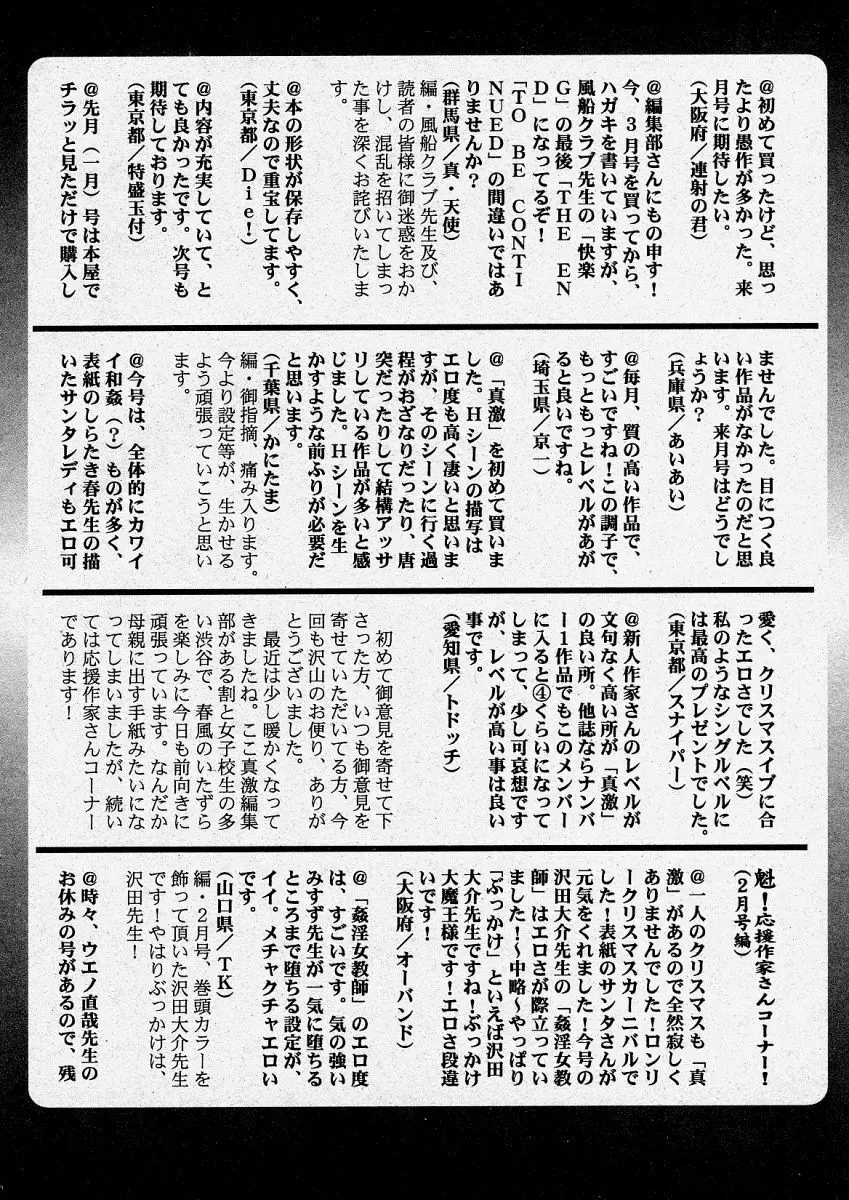 @初めて買ったけど、思っ
たより愚作が多かった。来
月号に期待したい。
(大阪府／連射の君)
@編集部さんにもの申す！
今、3月号を買ってから、
ハガキを書いていますが、
風船クラブ先生の「快楽
G」の最後「THE EN
D」になってるぞ！
「TO BE CONTI
NUED」の間違いではあ
りませんか？
(群馬県／真・天使)
編・風船クラブ先生及び、
読者の皆様に御迷惑をおか
けし、混乱を招いてしまっ
た事を深くお詫びいたしま
す。
@本の形状が保存しやすく、
丈夫なので重宝してます。
(東京都／Die！)
@内容が充実していて、と
ても良かったです。次号も
期待しております。
(東京都／特盛玉付)
@先月(一月)号は本屋で
チラッと見ただけで購入し
ませんでした。目につく良
い作品がなかったのだと思
います。来月号はどうでし
ょうか？
(兵庫県／あいあい)
@毎月、質の高い作品で、
すごいですね！この調子で、
もっともっとレベルがあが
ると良いですね。
(埼玉県／京一)
@「真激」を初めて買いま
した。Hシーンの描写は
エロ度も高く凄いと思いま
すが、そのシーンに行く過
程がおざなりだったり、唐
突だったりして結構アッサ
リしている作品が多いと感
じました。Hシーンを生
かすような前ふりが必要だ
と思います。
(千葉県／かにたま)
編・御指摘、痛み入ります。
今より設定等が、生かせる
よう頑張っていこうと思い
ます。
@今号は、全体的にカワイ
イ和姦(？)ものが多く、
表紙のしらたき春先生の描
いたサンタレディもエロ可
愛く、クリスマスイブに合
ったエロさでした(笑)
私のようなシングルベルに
は最高のプレゼントでした。
(東京都／スナイパー)
@新人作家さんのレベルが
文句なく高い所が「真激」
の良い所。他誌ならナンバ
ー1作品でもこのメンバー
に入ると④くらいになって
しまって、少し可哀想です
が、レベルが高い事は良い
事です。
(愛知県／トドッチ)
初めて御意見を寄せて下
さった方、いつも御意見を
寄せていただいてる方、今
回も沢山のお便り、ありが
とうございました。
最近は少し暖かくなって
きましたね。ここ真激編集
部がある割と女子校生の多
い渋谷で、春風のいたずら
を楽しみに今日も前向きに
頑張っています。なんだか
母親に出す手紙みたいにな
ってしまいましたが、続い
ては応援作家さんコーナー
であります！
魁！応援作家さんコーナー！
(2月号編)
@一人のクリスマスも「真
激」があるので全然寂しく
ありませんでした！ロンリ
ークリスマスカーニバルで
した！表紙のサンタさんが
元気をくれました！今号の
沢田大介先生の「姦淫女教
師」はエロさが際立ってい
ました！～中略～やっぱり
「ぶっかけ」といえば沢田
大介先生ですね！ぶっかけ
大魔王様です！エロさ段違
いです！
(大阪府／オーバンド)
@「姦淫女教師」のエロ度
は、すごいです。気の強い
みすず先生が一気に堕ちる
ところまで堕ちる設定が、
イイ。メチャクチャエロい
です。
(山口県／TK)
編・2月号、巻頭カラーを
飾って頂いた沢田大介先生
です！やはりぶっかけは、
沢田先生！
@時々、ウエノ直哉先生の
お休みの号があるので、残